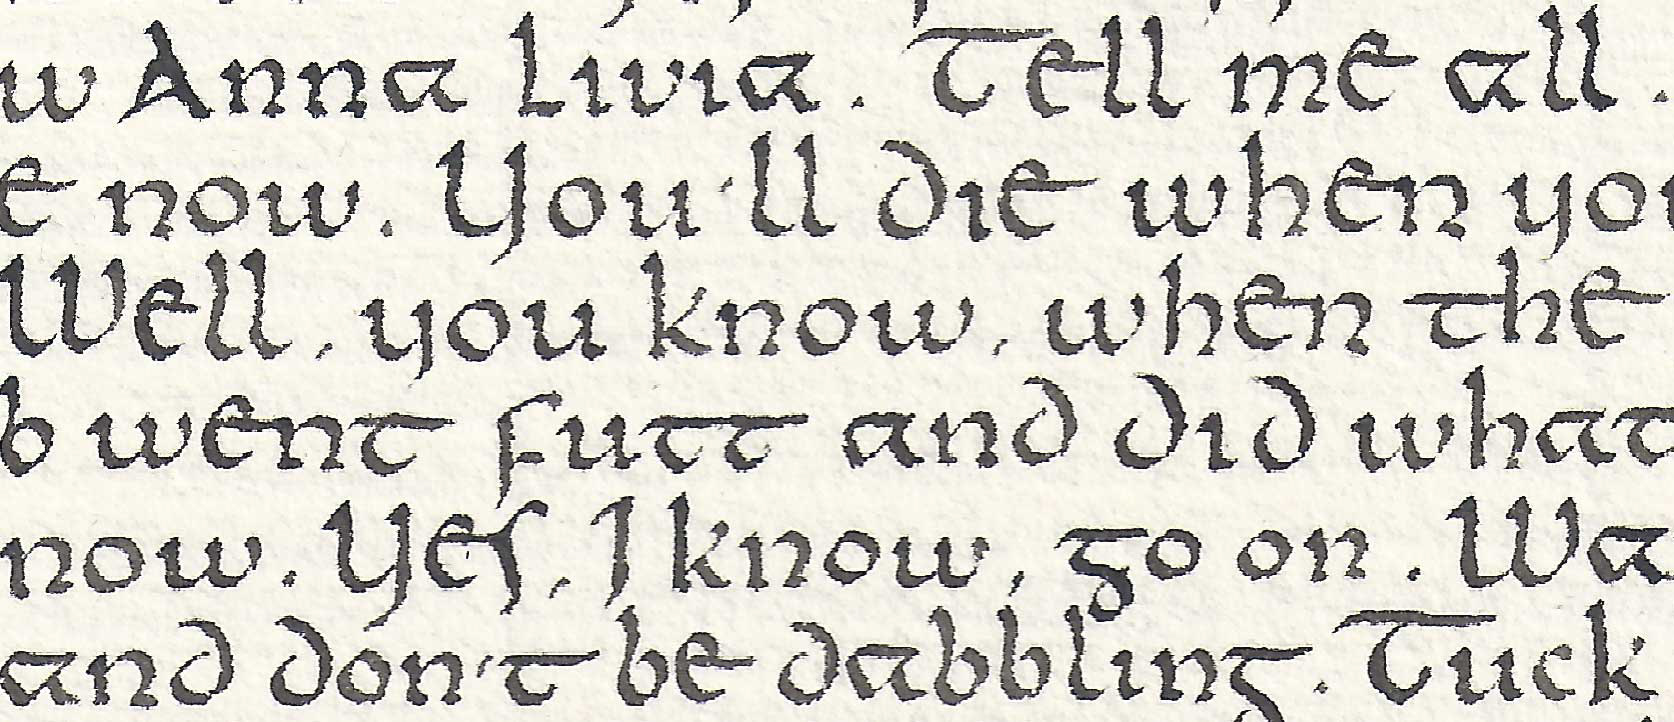 w Anna Livia. Tell me all.
e now. You'll die when you
Well, you know, when the
b went futt and did what
now. Yes, I know, go on. Wa
and don't be dabbling. Tuck